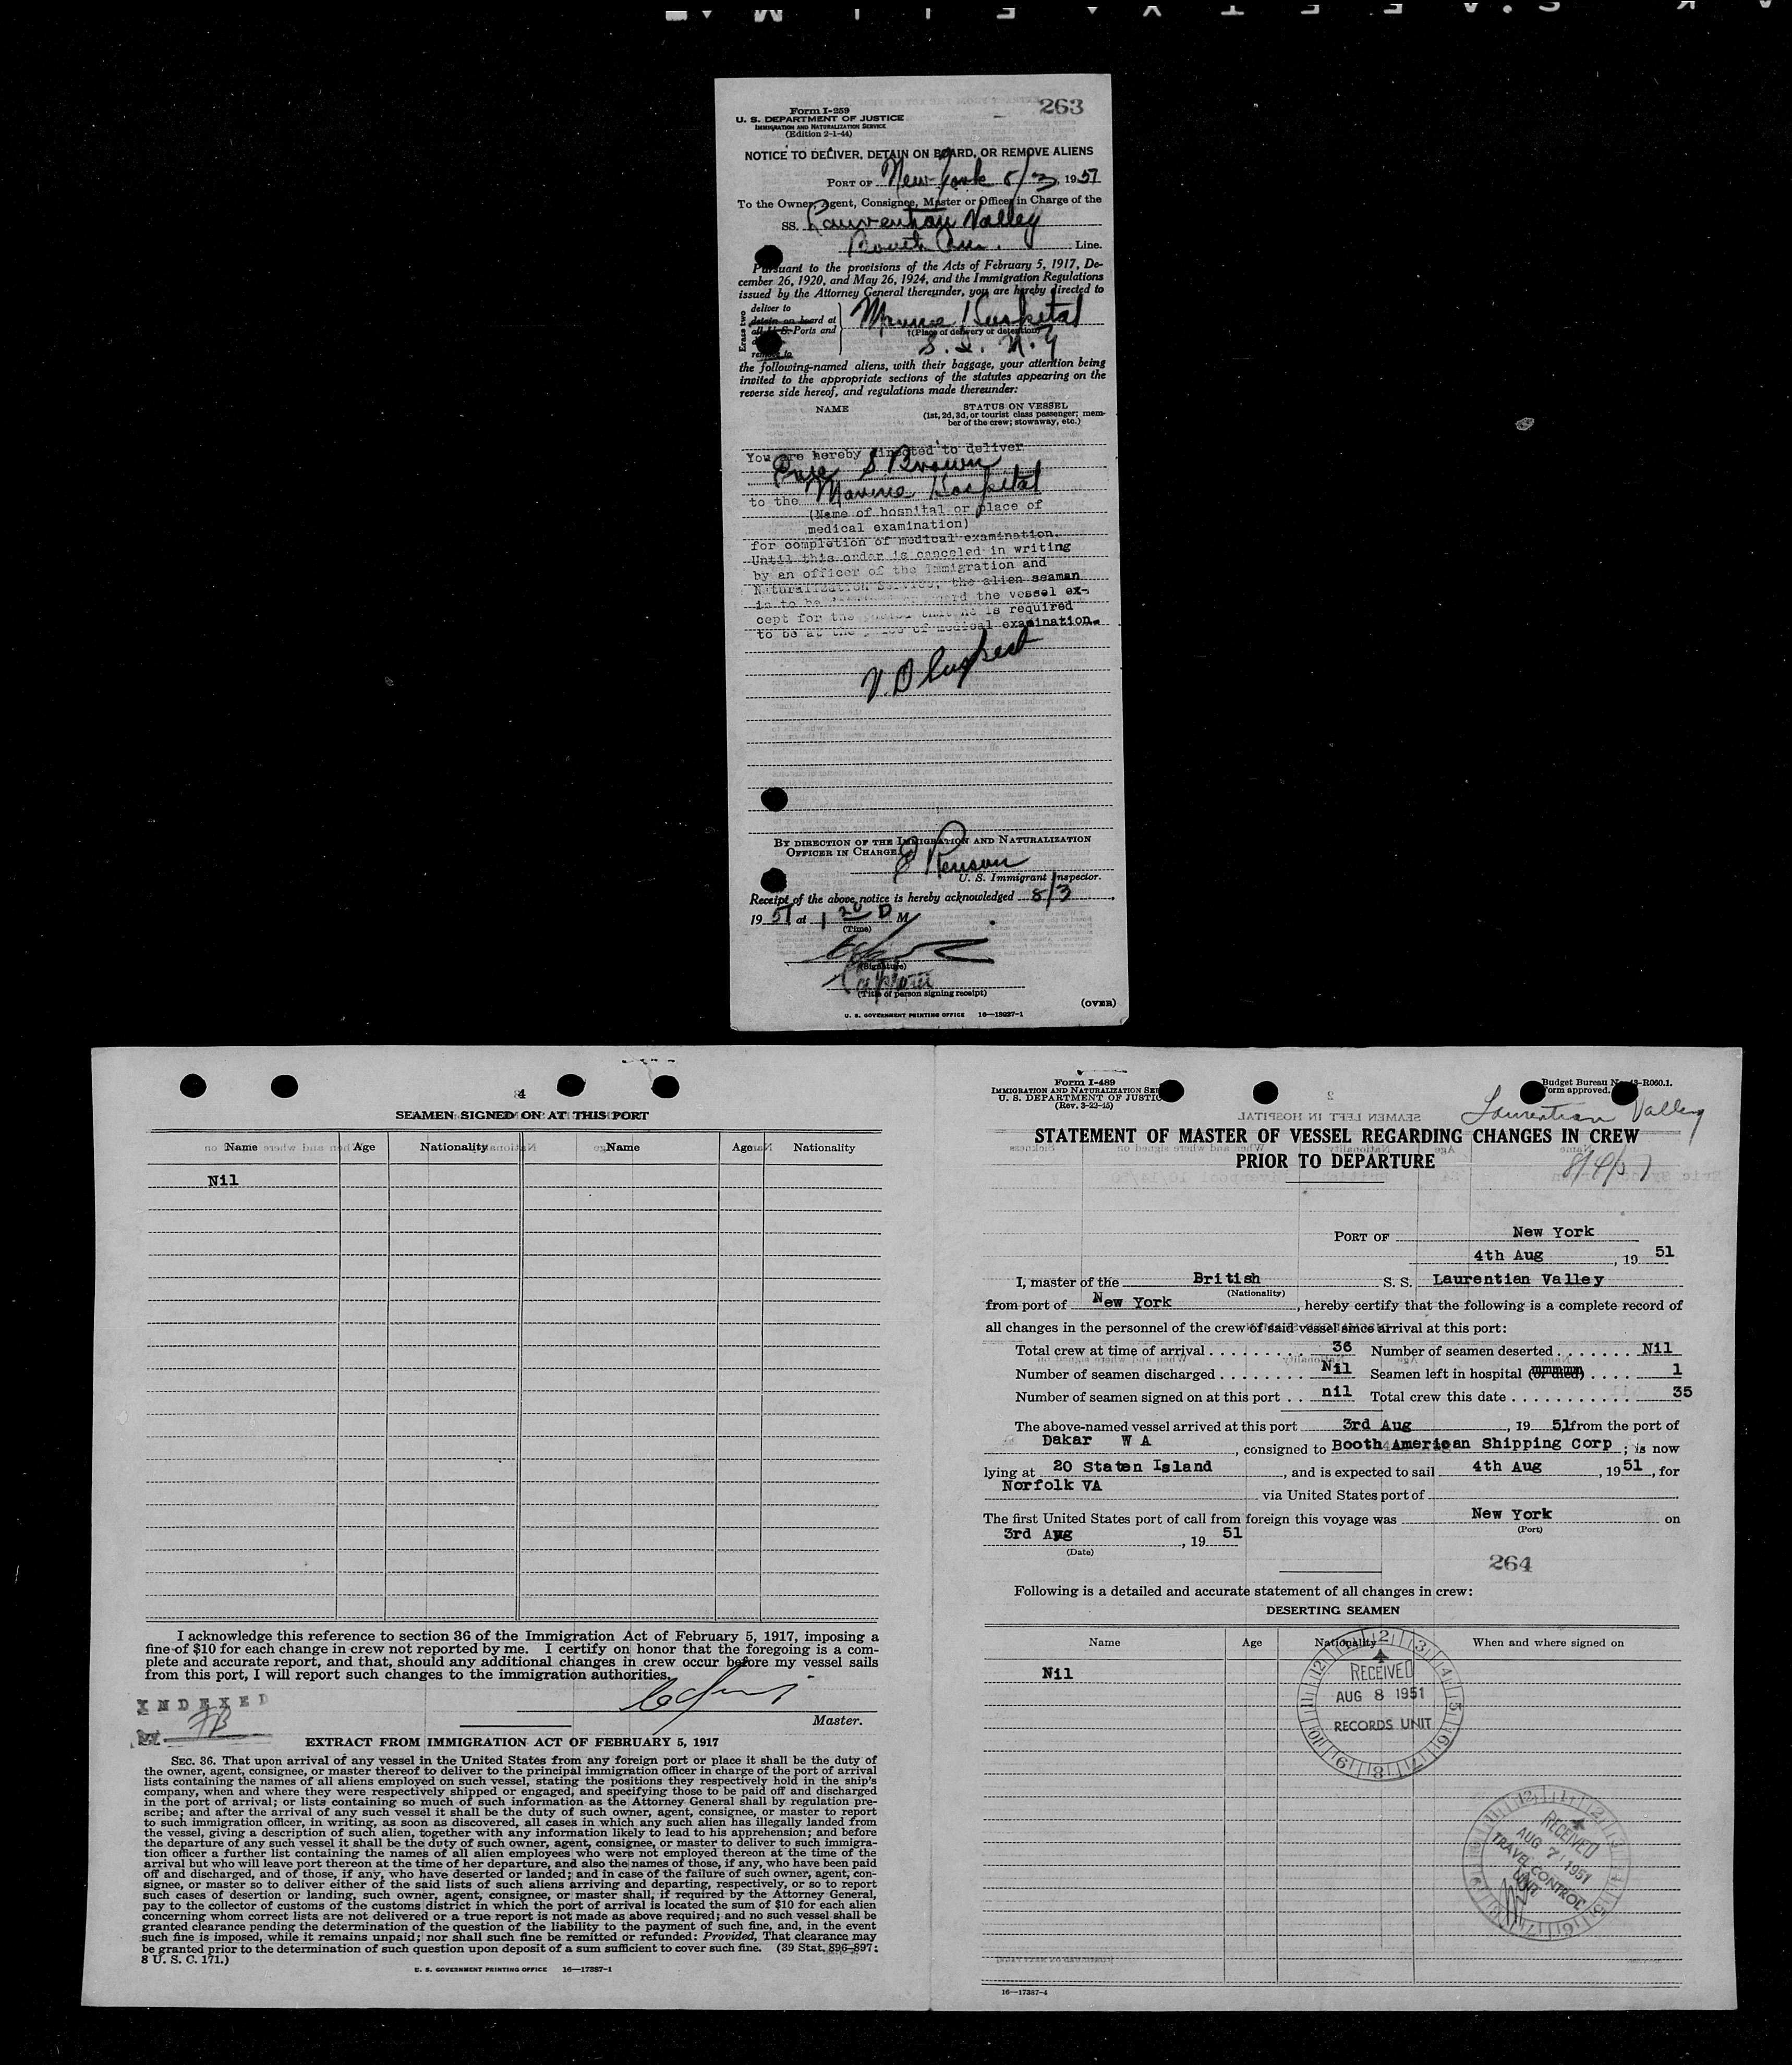 263
Form I-259
U. S. DEPARTMENT OF JUSTICE
IMMIGRATION AND NATURALIZATION SERVICE
(Edition 2-1-44)
NOTICE TO DELIVER, DETAIN ON BOARD, OR REMOVE ALIENS
PORT OF New York 8/3, 1951
To the Owner, Agent, Consignee, Master or Officer in Charge of the
SS. Laurentian Valley
Booth Am. Line.
Pursuant to the provisions of the Acts of February 5, 1917, De-
cember 26, 1920, and May 26, 1924, and the Immigration Regulations
issued by the Attorney General thereunder, you are hereby directed to
Erase two
deliver to
detain on board at
all U. S. Ports and
remove to
Marine Hospital
†(Place of delivery or detention)
S. I. N. Y
the following-named aliens, with their baggage, your attention being
invited to the appropriate sections of the statutes appearing on the
reverse side hereof, and regulations made thereunder:
NAME STATUS ON VESSEL
(1st, 2d, 3d, or tourist class passenger; mem-
ber of the crew; stowaway, etc.)
You are hereby directed to deliver
S Brown
to the Marine Hospital
(Name of hospital or place of
medical examination)
for completion of medical examination.
Until this order is canceled in writing
by an officer of the Immigration and
Naturalization Service, the alien seaman
is to be board the vessel ex-
cept for the that he is required
to be at the place of medical examination.
BY DIRECTION OF THE IMMIGRATION AND NATURALIZATION
OFFICER IN CHARGE.
U. S. Immigrant Inspector.
Receipt of the above notice is hereby acknowledged 8/3,
1951, at 1 20 P M
(Time)
(Signature)
Captain
(Title of person signing receipt)
(OVER)
U. S. GOVERNMENT PRINTING OFFICE 16—18027-1
4
SEAMEN SIGNED ON AT THIS PORT
Name Age Nationality Name Age Nationality
Nil
I acknowledge this reference to section 36 of the Immigration Act of February 5, 1917, imposing a
fine of $10 for each change in crew not reported by me. I certify on honor that the foregoing is a com-
plete and accurate report, and that, should any additional changes in crew occur before my vessel sails
from this port, I will report such changes to the immigration authorities.
INDEXED
BY
Master.
EXTRACT FROM IMMIGRATION ACT OF FEBRUARY 5, 1917
SEC. 36. That upon arrival of any vessel in the United States from any foreign port or place it shall be the duty of
the owner, agent, consignee, or master thereof to deliver to the principal immigration officer in charge of the port of arrival
lists containing the names of all aliens employed on such vessel, stating the positions they respectively hold in the ship's
company, when and where they were respectively shipped or engaged, and specifying those to be paid off and discharged
in the port of arrival; or lists containing so much of such information as the Attorney General shall by regulation pre-
scribe; and after the arrival of any such vessel it shall be the duty of such owner, agent, consignee, or master to report
to such immigration officer, in writing, as soon as discovered, all cases in which any such alien has illegally landed from
the vessel, giving a description of such alien, together with any information likely to lead to his apprehension; and before
the departure of any such vessel it shall be the duty of such owner, agent, consignee, or master to deliver to such immigra-
tion officer a further list containing the names of all alien employees who were not employed thereon at the time of the
arrival but who will leave port thereon at the time of her departure, and also the names of those, if any, who have been paid
off and discharged, and of those, if any, who have deserted or landed; and in case of the failure of such owner, agent, con-
signee, or master so to deliver either of the said lists of such aliens arriving and departing, respectively, or so to report
such cases of desertion or landing, such owner, agent, consignee, or master shall, if required by the Attorney General,
pay to the collector of customs of the customs district in which the port of arrival is located the sum of $10 for each alien
concerning whom correct lists are not delivered or a true report is not made as above required; and no such vessel shall be
granted clearance pending the determination of the question of the liability to the payment of such fine, and, in the event
such fine is imposed, while it remains unpaid; nor shall such fine be remitted or refunded: Provided, That clearance may
be granted prior to the determination of such question upon deposit of a sum sufficient to cover such fine. (39 Stat. 896–897;
8 U. S. C. 171.)
U. S. GOVERNMENT PRINTING OFFICE 16—17387-1
Form I-489
IMMIGRATION AND NATURALIZATION SER
U. S. DEPARTMENT OF JUSTIC
(Rev. 3-22-45)
Budget Bureau No. 43-R060.1.
Form approved.
Laurentian Valley
STATEMENT OF MASTER OF VESSEL REGARDING CHANGES IN CREW
PRIOR TO DEPARTURE
8/4/51
PORT OF New York
4th Aug, 1951
I, master of the British S. S. Laurentian Valley
(Nationality)
from port of New York, hereby certify that the following is a complete record of
all changes in the personnel of the crew of said vessel since arrival at this port:
Total crew at time of arrival 36 Number of seamen deserted Nil
Number of seamen discharged Nil Seamen left in hospital (or died) 1
Number of seamen signed on at this port nil Total crew this date 35
The above-named vessel arrived at this port 3rd Aug, 1951 from the port of
Dakar W A, consigned to Booth American Shipping Corp; is now
lying at 20 Staten Island, and is expected to sail 4th Aug, 1951, for
Norfolk VA via United States port of
The first United States port of call from foreign this voyage was New York on
(Port)
3rd Aug, 1951
(Date)
264
Following is a detailed and accurate statement of all changes in crew:
DESERTING SEAMEN
Name Age Nationality When and where signed on
Nil
RECEIVED
AUG 8 1951
RECORDS UNIT
RECEIVED
AUG 7 1951
TRAVEL CONTROL
UNIT
16—17387-4